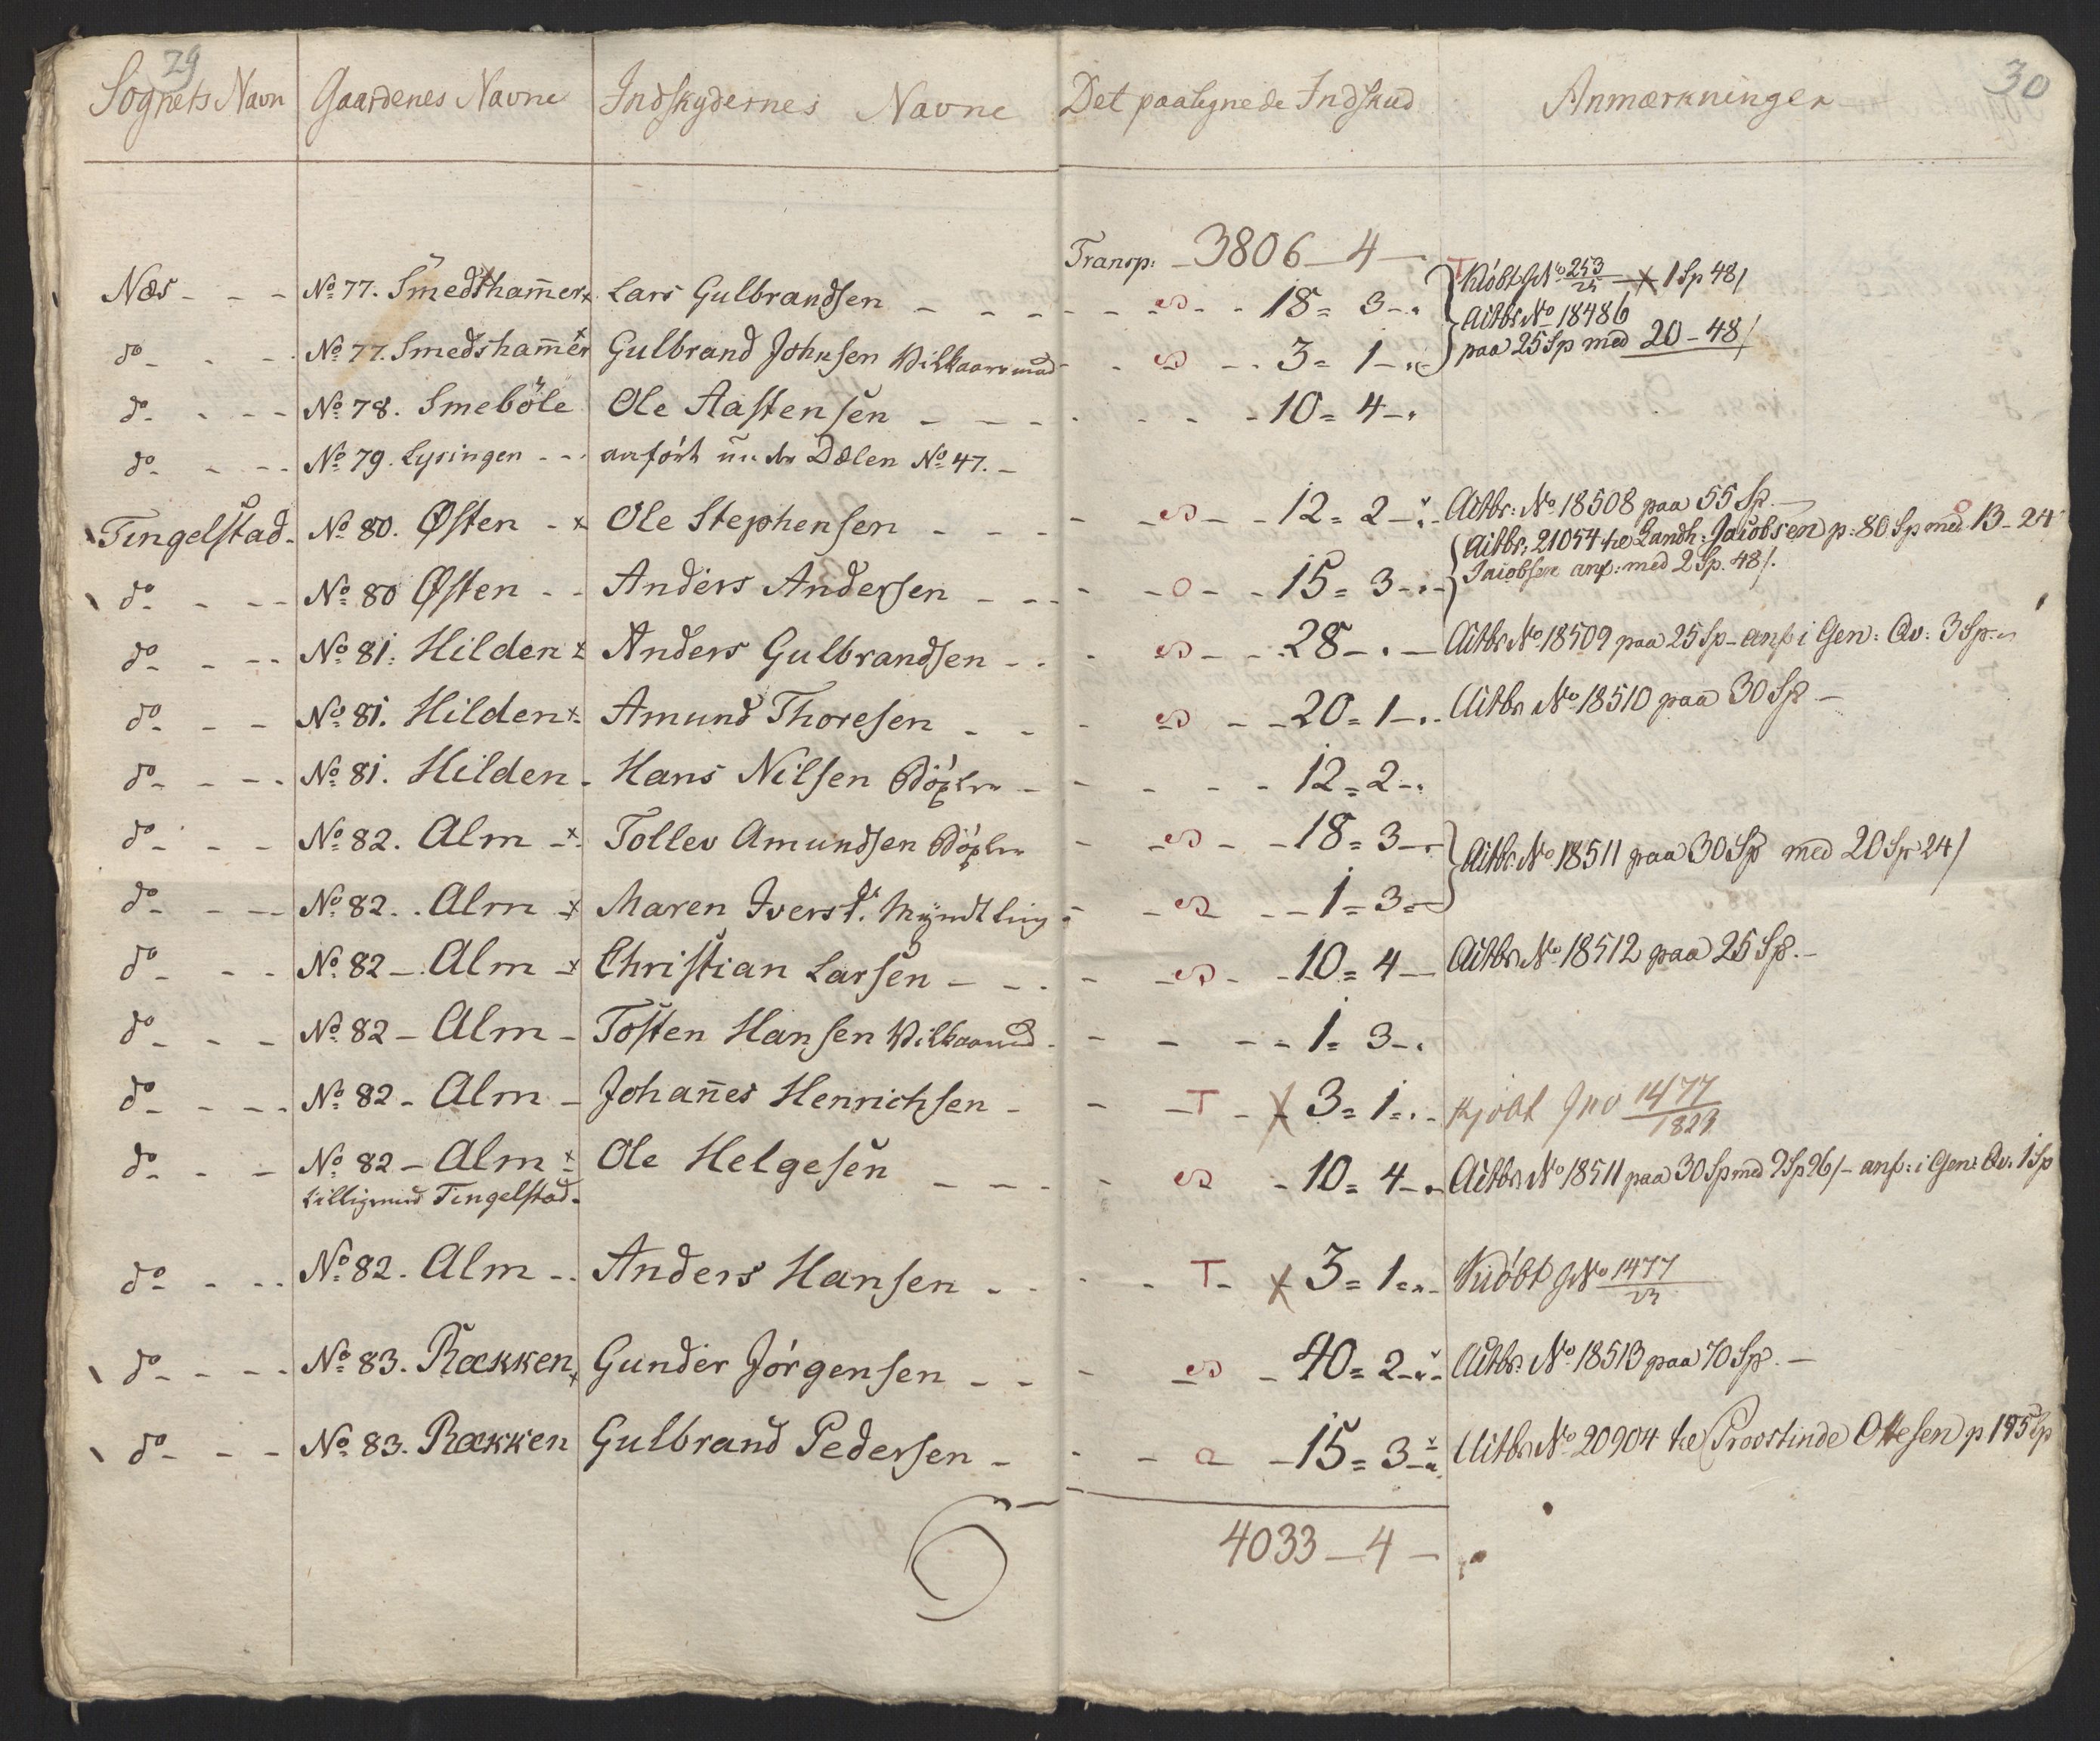 29
30
Sognets Navn Gaardenes Navne Indskydernes Navne Det paalignede Indskud Anmærkninger
Transp: 3806 - 4 -
Næs - - - No 77. Smedsham̄er x Lars Gulbrandsen - - - - 18 = 3 - . Kiöbt J No 253/23 - x 1 Sp 48/
do - - - No 77. Smedsham̄er x Gulbrand Johnsen Vilkaarsmand - - 3 = 1 - . Aitbr No 18486
paa 25 Sp med 20 - 48/
do - - - No 78. Smeböle Ole Aastensen - - - 10 = 4 - .
do - - - No 79. Lysingen - - anfört under Dælen No 47. -
Tingelstad - No 80. Østen - x Ole Stephensen - - - 12 = 2 - . Aitbr: No 18508 paa 55 Sp. -
do - - - No 80 Østen - - Anders Andersen - - - o - - 15 = 3 - . - Aitbr, 21054 te Landh: Jacobsen p: 80 Sp med 13 - 24
Jacobsen anf: med 2 Sp. 48/.
do - - - No 81. Hilden x Anders Gulbrandsen - - - 28 - . - Aitbr No 18509 paa 25 Sp - anf i Gen: Qv: 3 Sp.
do - - - No 81. Hilden x Amund Thoresen - - - 20 = 1 - . - Aitbr No 18510 paa 30 Sp -
do - - - No 81. Hilden - Hans Nilsen - - - 12 = 2 - .
do - - - No 82. Alm - x Tollev Amundsen - - 18 = 3 - Aitbr No 18511 paa 30 Sp med 20 Sp 24/
do - - - No 82. Alm - x Maren Iversd. Myndtling - - 1 = 3 =
do - - - No 82 - Alm - x Christian Larsen - - - 10 = 4 - Aitbr No 18512 paa 25 Sp. -
do - - - No 82 - Alm - Tosten Hansen Vilkaarmd - - - 1 = 3 - .
do - - - No 82 - Alm - Johan̄es Henrichsen - - T - x 3 = 1 = . - Kjöbt J No 1477/1823
do - - - No 82 - Alm x Ole Helgesen - - - 10 = 4 - . Aitbr No 18511 paa 30 Sp med 9 Sp 96/ - anf: i Gen: Qv. 1 Sp
tilligemed Tingelstad.
do - - - No 82. Alm - - Anders Hansen - - - T - x 3 = 1 = . - Kiöbt J No 1477/23
do - - - No 83. Rækken x Gunder Jörgensen - - - 40 = 2 - . - Aitbr. No 18513 paa 70 Sp. -
do - - - No 83. Rækken Gulbrand Pedersen - - - a - 15 = 3 - Aitbr No 20904 te Provstinde Ottesen p 195 Sp
4033 - 4 -